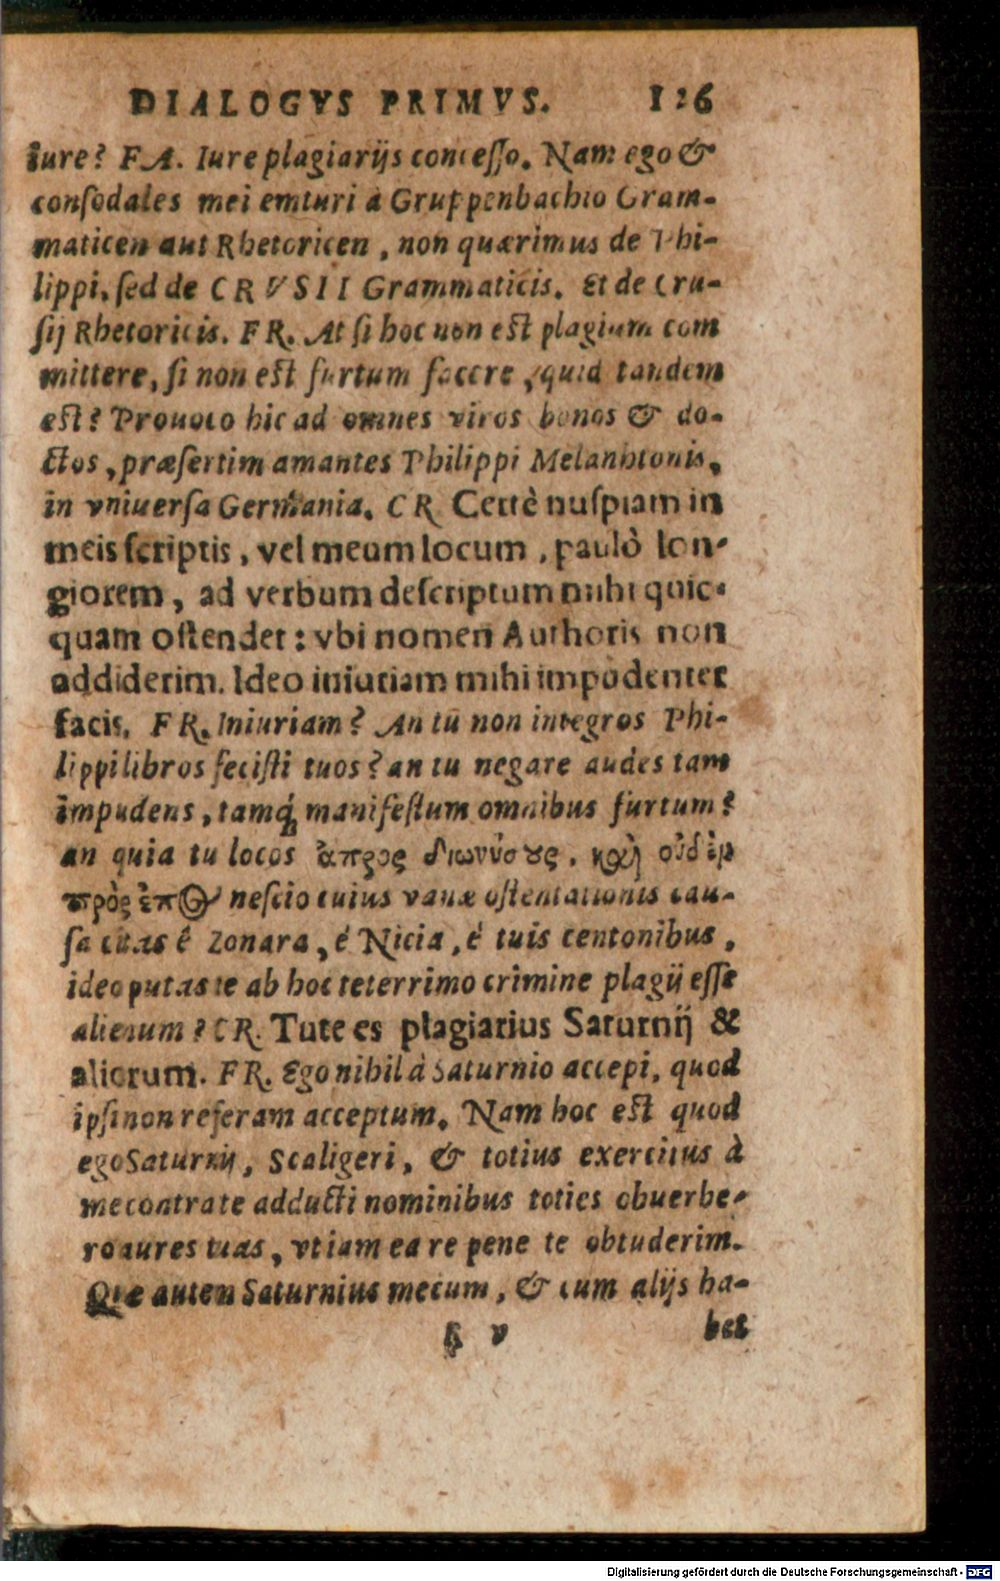 DIALOGVS PRIMVS. 126
iure? FA. Iure plagiarijs concesso. Nam ego &
consodales mei emturi à Gruppenbachio Gram-
maticen aut Rhetoricen, non quærimus de Phi-
lippi, sed de CRVSII Grammaticis. Et de Cru-
sij Rhetoricis. FR. At si hoc non est plagium com
mittere, si non est furtum facere, quid tandem
est? Prouoco hic ad omnes viros bonos & do-
ctos, præsertim amantes Philippi Melanhtonis,
in vniuersa Germania. CR. Certè nuspiam in
meis scriptis, vel meum locum, paulò lon-
giorem, ad verbum descriptum mihi quic-
quam ostendet: vbi nomen Authoris non
addiderim. Ideo iniuriam mihi impudenter
facis. FR. Iniuriam? An tu non integros Phi-
lippi libros fecisti tuos? an tu negare audes tam
impudens, tamq́ manifestum omnibus furtum?
an quia tu locos ἄπρος διωνύσους, καὶ οὐδὲμ
πρὸς ἔπ⊙ nescio cuius vanæ ostentationis cau-
sa citas è Zonara, è Nicia, è tuis centonibus,
ideo putas te ab hoc teterrimo crimine plagij esse
alienum? CR. Tute es plagiarius Saturnij &
aliorum. FR. Ego nihil à Saturnio accepi, quod
ipsi non referam acceptum. Nam hoc est quod
ego Saturnij, Scaligeri, & totius exercitus à
me contra te adducti nominibus toties obuerbe-
ro aures tuas, vt iam ea re pene te obtuderim.
Quæ autem Saturnius mecum, & cum alijs ha-
v bet
Digitalisierung gefördert durch die Deutsche Forschungsgemeinschaft - DFG